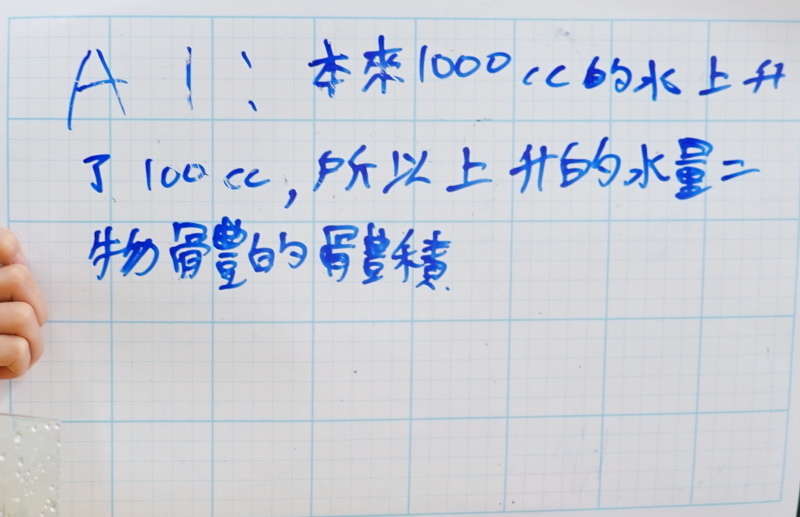 A1：本來1000cc的水上升
了100cc,所以上升的水量=
物體的體積